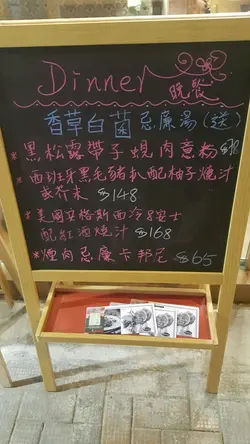 Dinner
晚餐
香草白菌忌廉湯(送)
* 黑松露帶子蜆肉意粉
* 西班牙黑毛豬扒配柚子燒汁
或芥末 $148
* 美國安格斯西冷8安士
配紅酒燒汁 $168
* 煙肉忌廉卡邦尼 $65